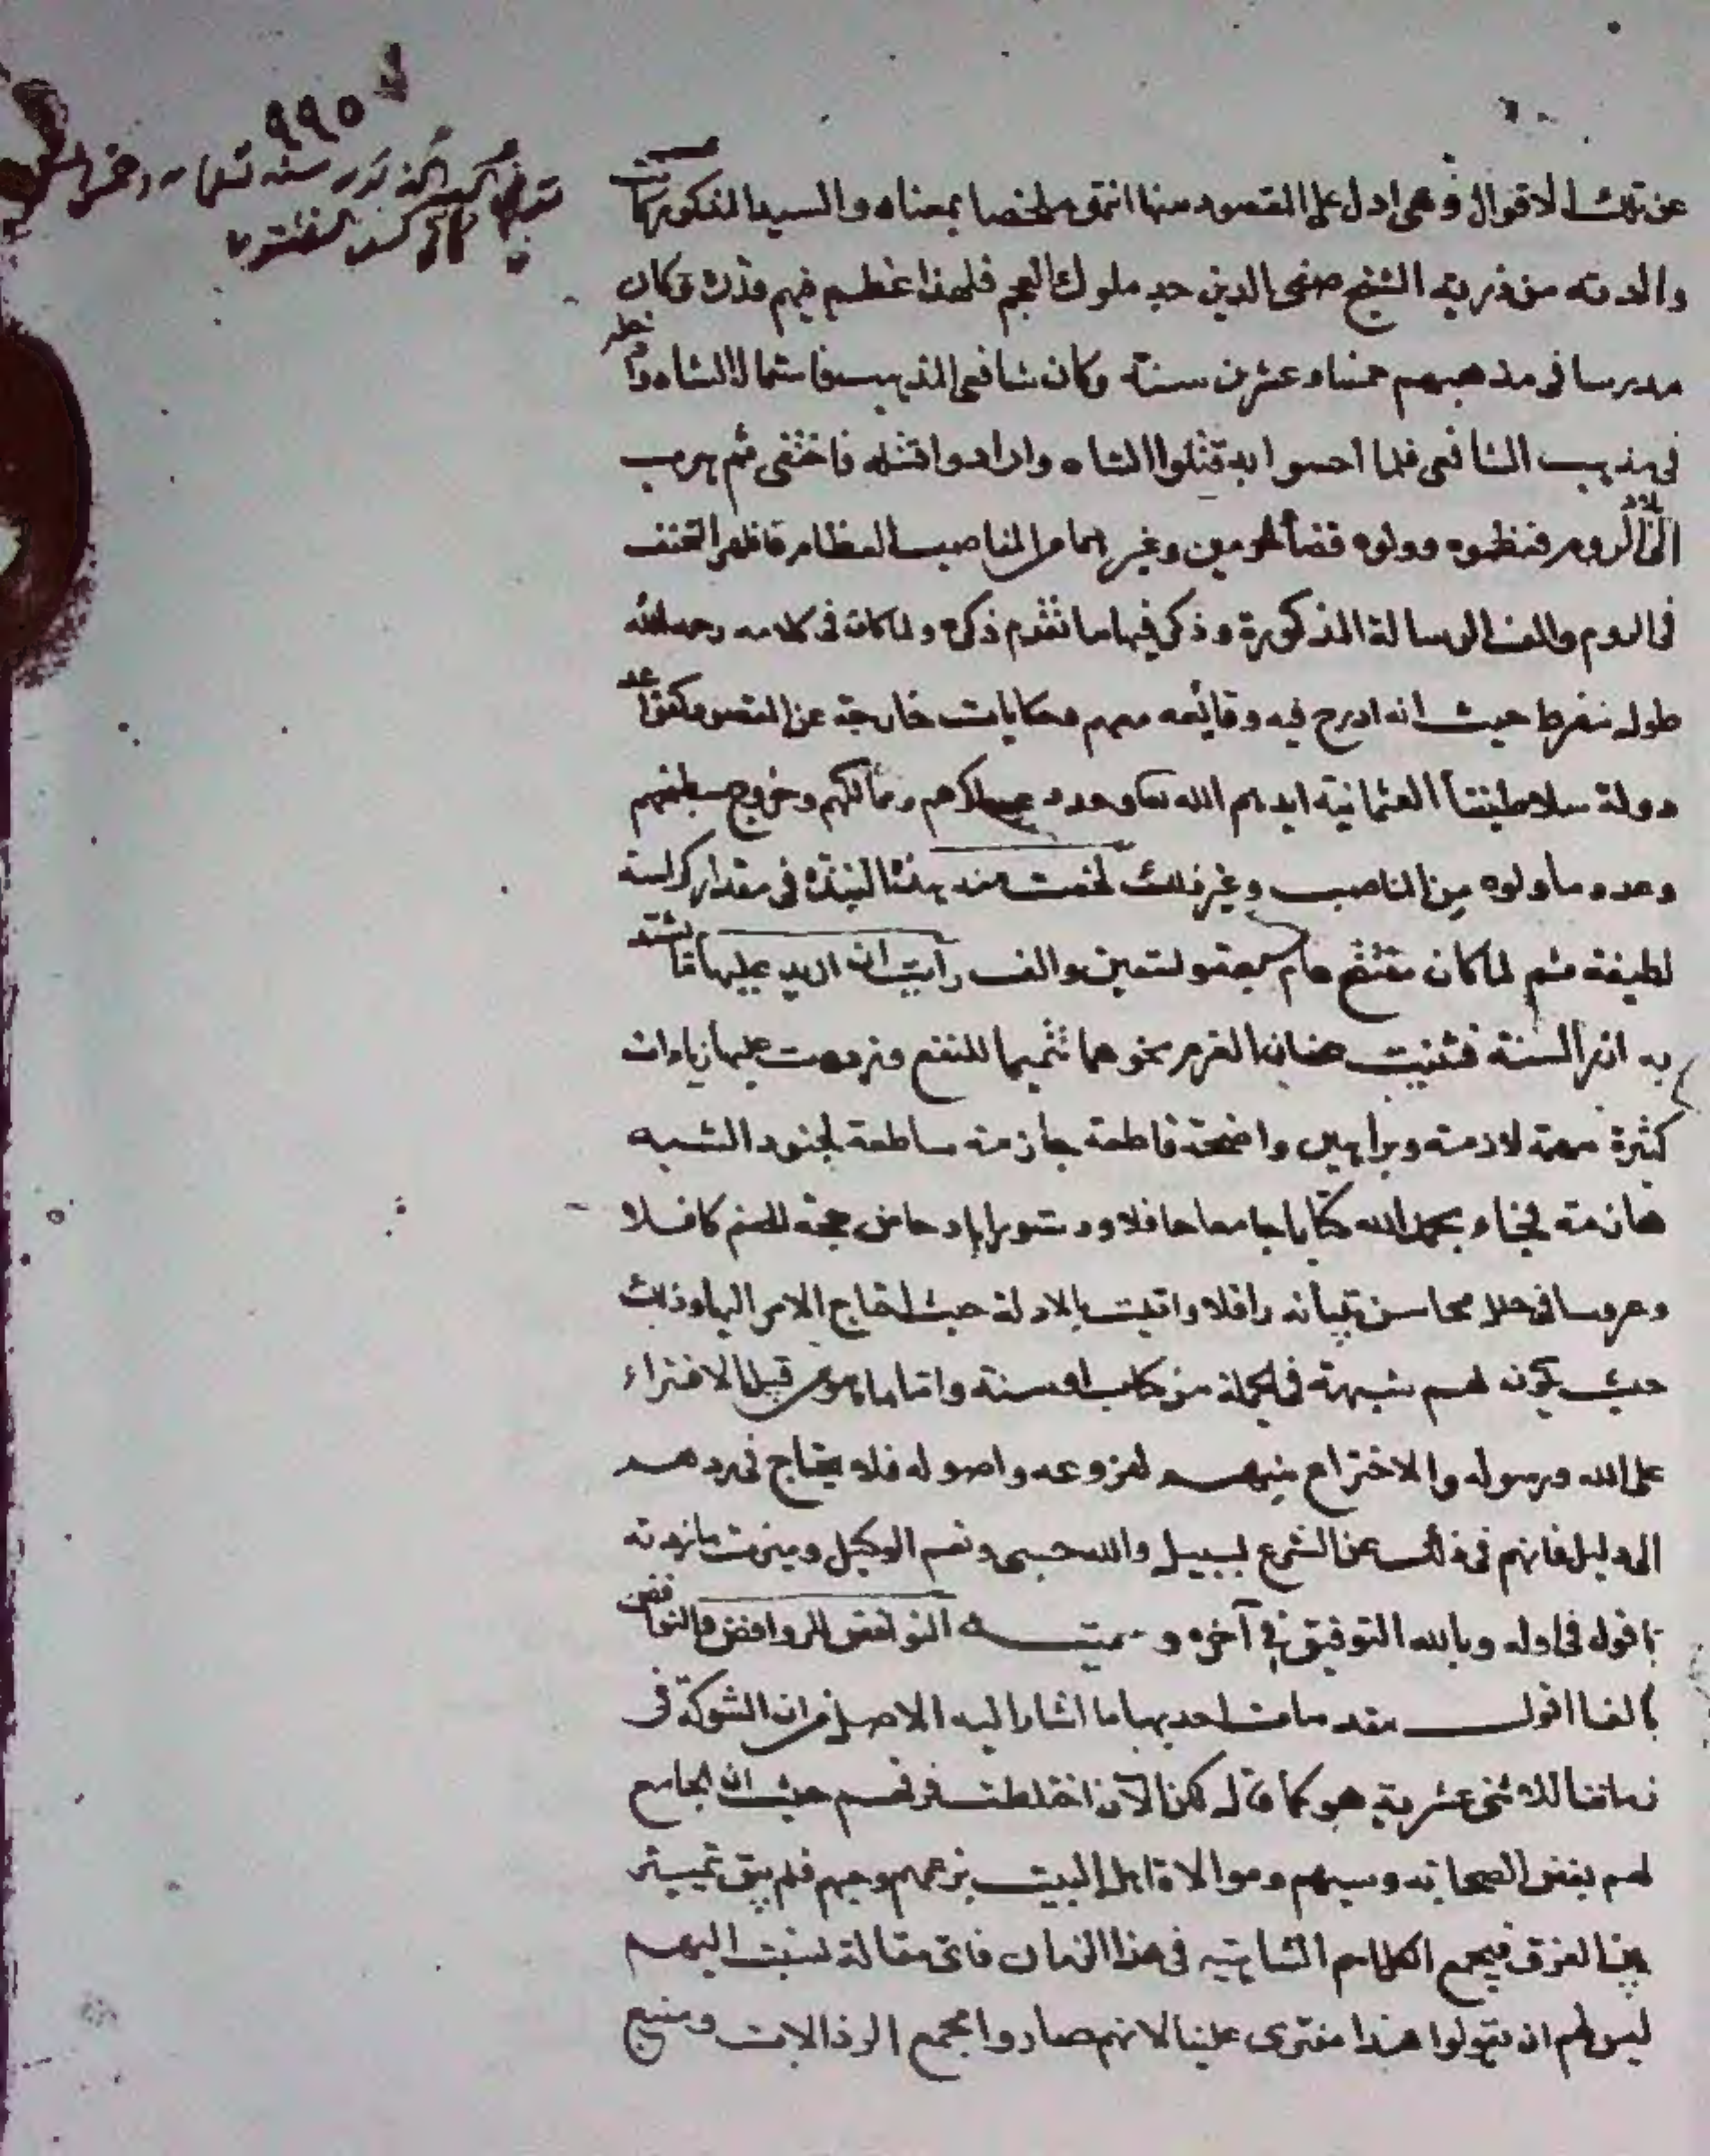 ٩٩٥
عن تلك الاقوال وهي ادل على المقصود منها انتهى ملخصا بمعناه والسيد المذكور كانت
والدته من ذرية الشيخ صفي الدين جد ملوك العجم فلهذا عظم فيهم قدره وكان
مدرسا في مذهبهم خمسا وعشرين سنة وكان شافعي المذهب فاستمال الشاه وادخله
في مذهب الشافعي فلما احسوا به قتلوا الشاه وارادوا قتله فاختفى ثم هرب
الى بلاد الروم فعظموه وولوه قضا الحرمين وغيرهما من المناصب العظام فاظهر التحنف
في الروم والف الرسالة المذكورة وذكر فيها ما تقدم ذكره ولما كان في كلامه رحمه الله
طول مفرط حيث انه ادرج فيه وقائعه معهم وحكايات خارجة عن المقصود كعد
دولة سلاطيننا العثمانية ايدهم الله تعا وعدد عساكرهم وممالكهم وخروج سلطنتهم
وعدد ما ولوه من المناصب وغير ذلك لخصت منه هذه النبذة في مقدار كراسة
لطيفة ثم لما كان مفتتح عام سبعة وتسعين والف رأيت ان ازيد عليها ما تشتد
به ازر السنة فثنيت عنان العزم نحوها تتميما للنفع وزدت عليها زيادات
كثيرة مهمة لازمة وبراهين واضحة قاطعة جازمة ساطعة لجنود الشبه
هازمة فجاء بحمد الله كتابا جامعا حافلا ودستورا بإدحاض حجة الخصم كافلا
وعروسا في حلل محاسن تبيانه رافلا واتيت بالادلة حيث احتاج الامر اليها وذلك
حيث يكون لهم شبهة في الجملة من كتاب او سنة واما ما هو من قبيل الافتراء
على الله ورسوله والاختراع منهم لفروعه واصوله فلا يحتاج في ردهم
الى دليل فانهم في ذلك عن الشرع بسبيل والله حسبي ونعم الوكيل وميزت ما زدته
باقول في اوله وبالله التوفيق في آخره وسميته النواقض للروافض والنوافض
مقدمات احديها ما اشار اليه الاصل من ان الشوكة في
زماننا للاثني عشرية هو كما قال لكن الآن اختلطت فرقهم حيث ان الجامع
لهم بغض الصحابة وسبهم وموالاة اهل البيت بزعمهم وحبهم فلم يبق تمييز
بين الفرق فيجمع الكل اسم الشاهية في هذا الزمان فاي مقالة نسبت اليهم
ليس لهم ان يقولوا هذا مفترى علينا لانهم صاروا مجمع الرذالات ومنبع